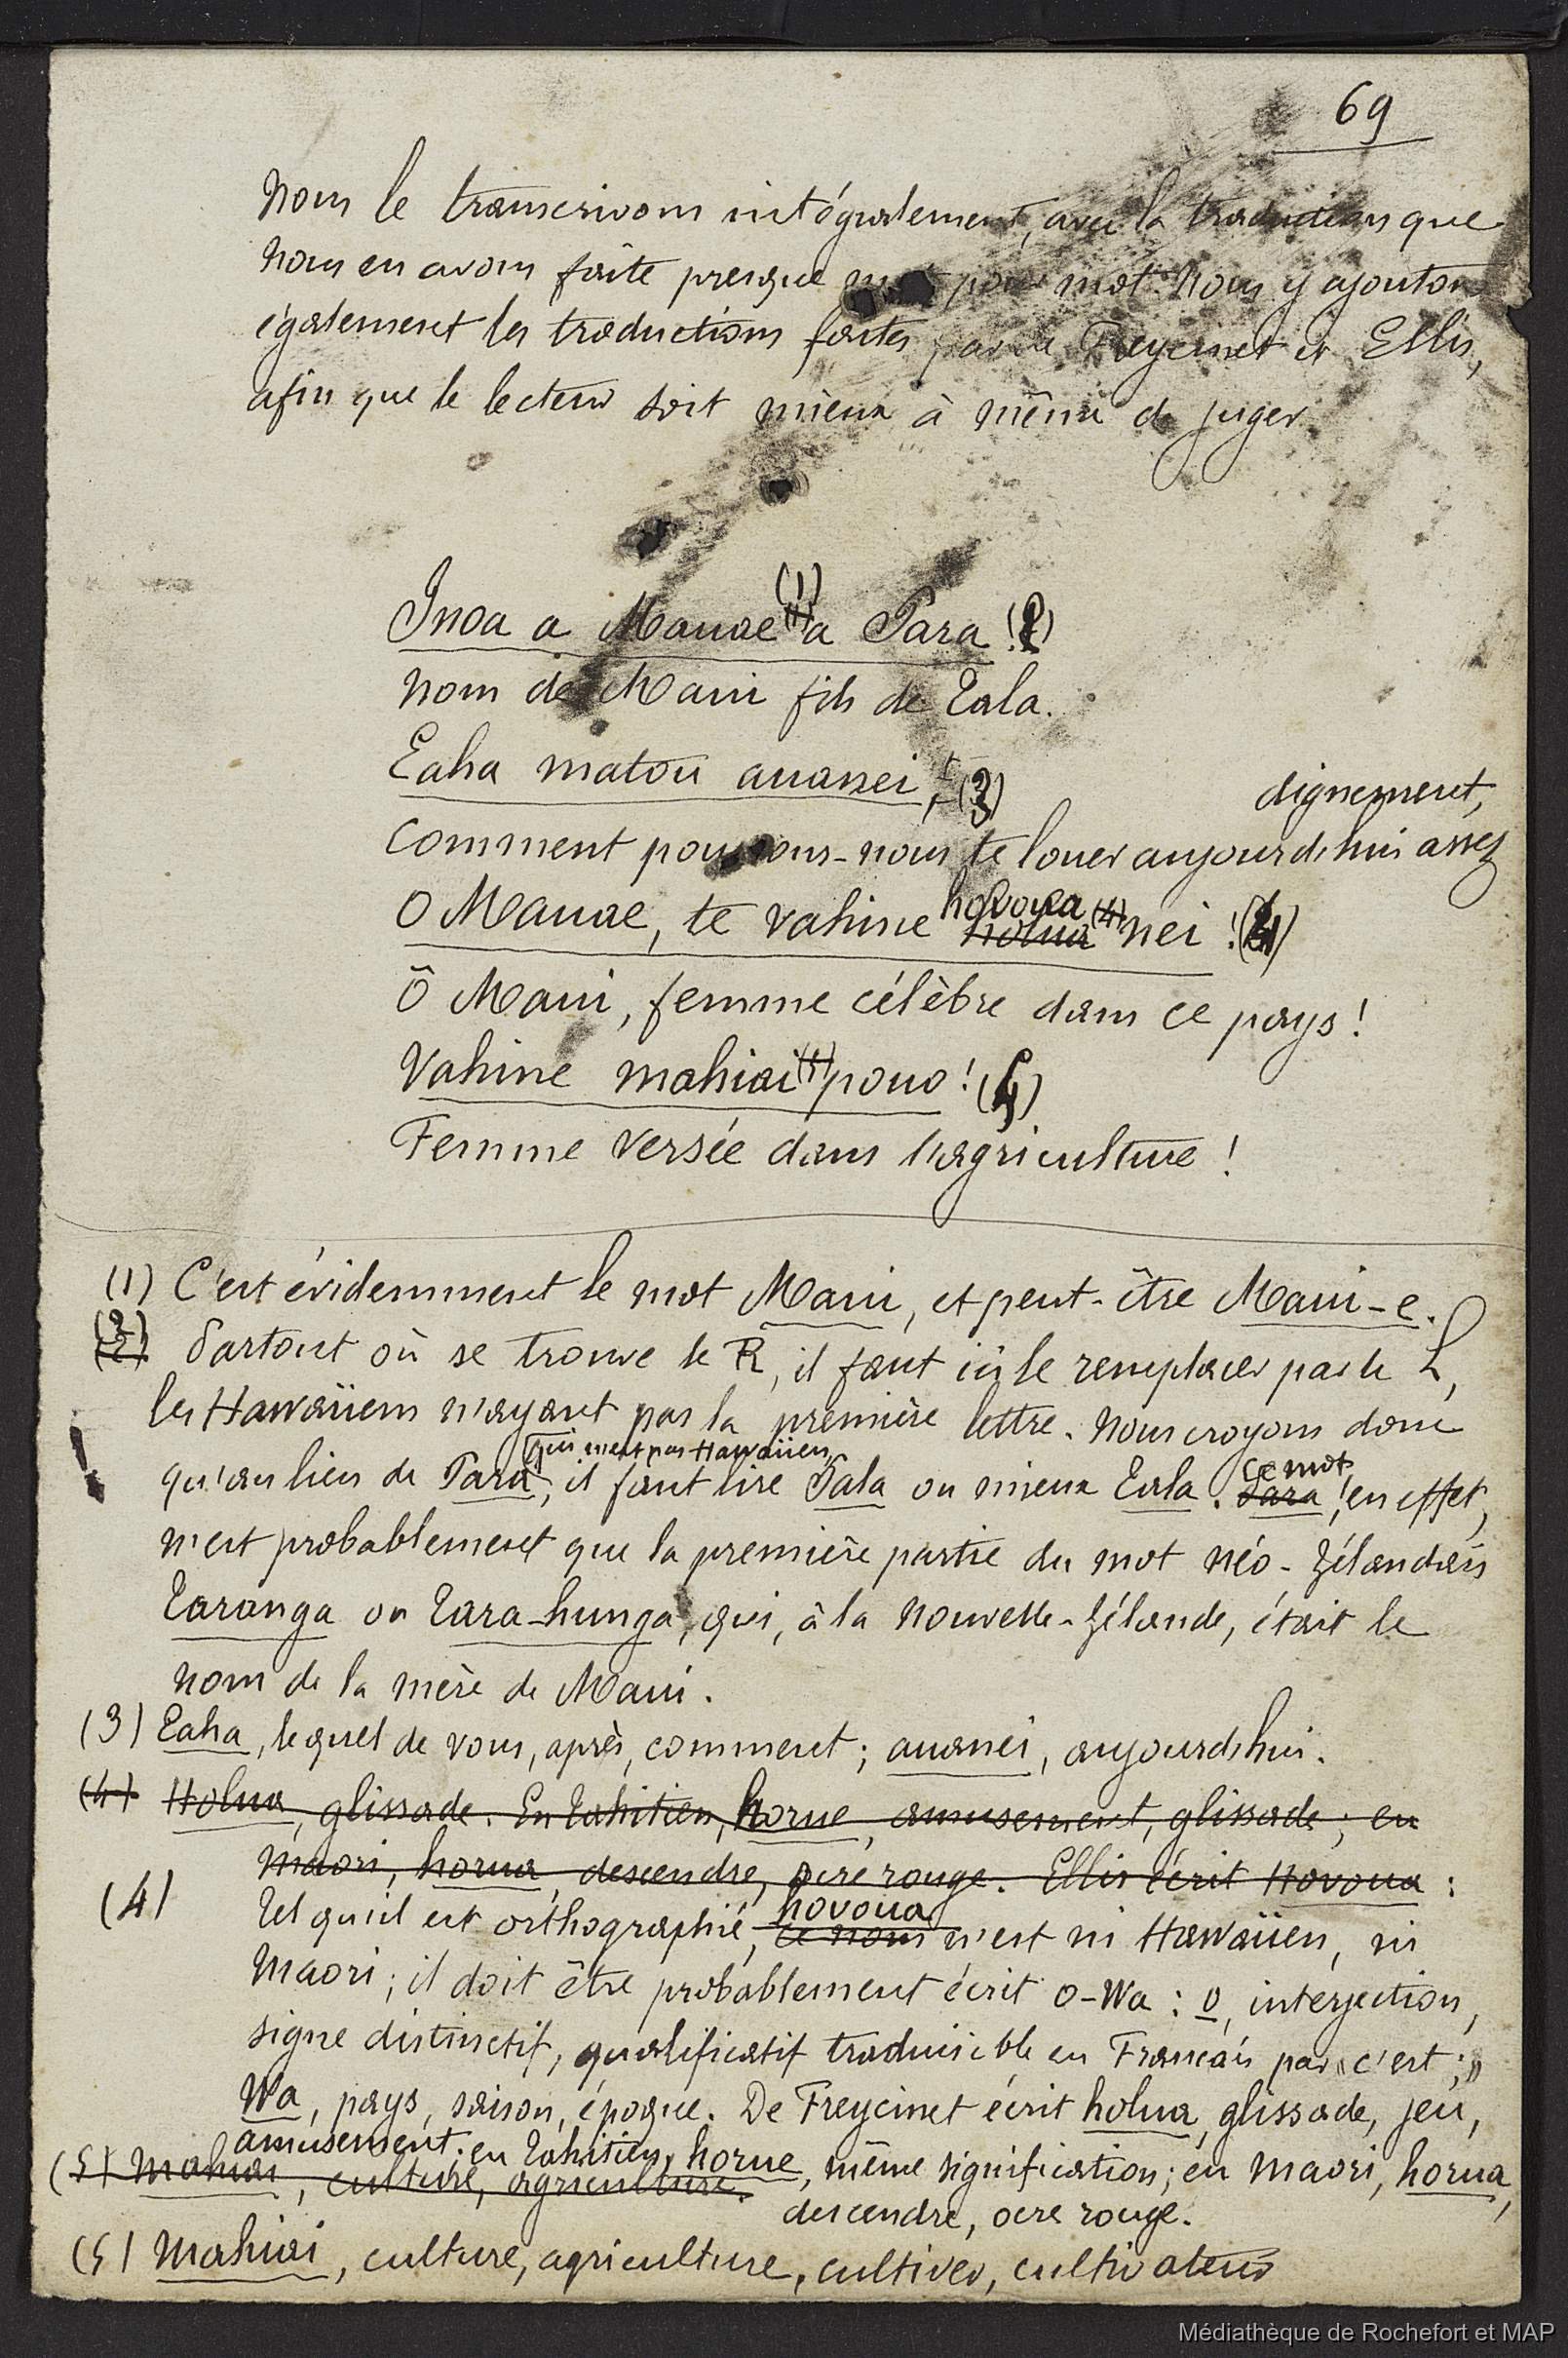 69
Nous le transcrivons intégralement, avec la traduction que
nous en avons faite presque mot pour mot. Nous y ajoutons
également les traductions faites par de Freycinet et Ellis,
afin que le lecteur soit mieux à même de juger.
Inoa a Mauae (1) a Para ! (2)
Nom de Maui fils de Tala.
Eaha matou auanei ! (3)
dignement,
Comment pourrons-nous te louer aujourd'hui assez
hovoua
O Mauae, te vahine holua (4) nei ! (4)
Ô Maui, femme célèbre dans ce pays !
Vahine mahiai pono ! (5)
Femme versée dans l'agriculture !
(1) C'est évidemment le mot Maui, et peut-être Maui-e.
(2)
(2) Partout où se trouve le R, il faut ici le remplacer par le L,
les Hawaïiens n'ayant pas la première lettre. Nous croyons donc
qui n'est pas Hawaïien,
ce mot,
qu'au lieu de Para, il faut lire Pala ou mieux Tala. Para, en effet,
n'est probablement que la première partie du mot néo-Zélandais
Taranga ou Tara-hunga, qui, à la Nouvelle-Zélande, était le
nom de la mère de Maui.
(3) Eaha, lequel de vous, après, comment ; auanei, aujourd'hui.
(4) Holua, glissade. En Tahitien, horue, amusement, glissade ; en
Maori, horua, descendre, ocre rouge. Ellis écrit Hovoua :
hovoua
(4) Tel qu'il est orthographié, ce nom n'est ni Hawaïien, ni
Maori ; il doit être probablement écrit o-Wa : o, interjection,
signe distinctif, qualificatif traduisible en Français par « c'est ; »
Wa, pays, saison, époque. De Freycinet écrit holua, glissade, jeu,
amusement ; en Tahitien, horue, même signification ; en Maori, horua,
(5) Mahiai, culture, agriculture.
descendre, ocre rouge.
(5) Mahiai, culture, agriculture, cultiver, cultivateur
Médiathèque de Rochefort et MAP